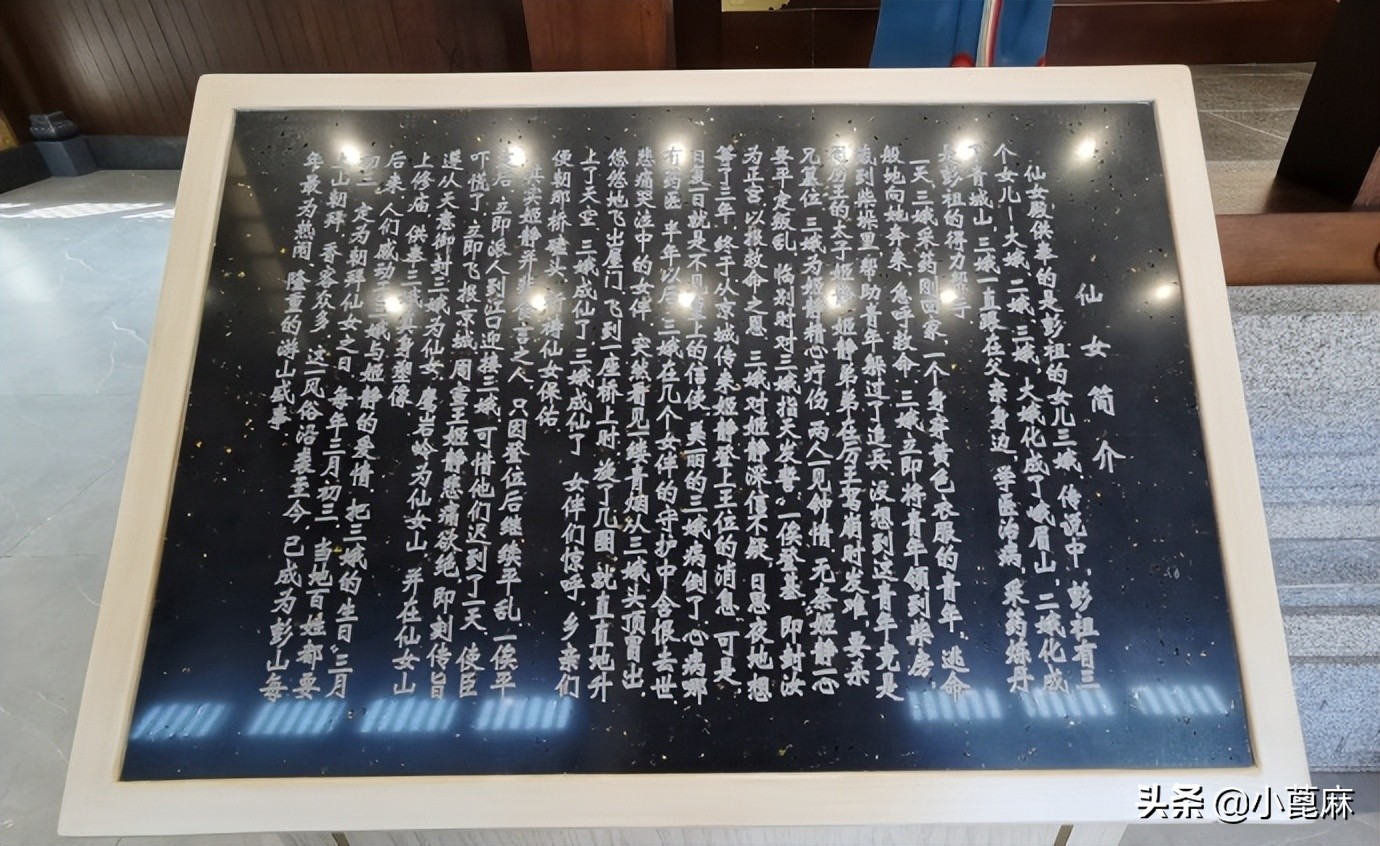 仙女简介
仙女殿供奉的是彭祖的女儿三娥。传说中，彭祖有三
个女儿—大娥、二娥、三娥。大娥化成了峨眉山，二娥化成
青城山，三娥一直跟在父亲身边，学医治病，采药炼丹
是彭祖的得力帮手
一天，三娥采药刚回家，一个身穿黄色衣服的青年，逃命
般地向她奔来，急呼救命，三娥立即将青年领到柴房，
藏到柴垛里，帮助青年躲过了追兵，没想到这青年竟是
厉王的太子姬静，姬静弟弟在厉王驾崩时发难，要杀
兄篡位，三娥为姬静精心疗伤，两人一见钟情，无奈姬静一心
要平定叛乱，临别时对三娥指天发誓：“一俟登基，即封汝
为正宫，以报救命之恩。三娥对姬静深信不疑，日思夜地想
等了三年，终于从京城传来姬静登上王位的消息，可是，
日复一日就是不见上的信使，美丽的三娥病倒了，心病哪
有药医，半年以后，三娥在几个女伴的守护中含恨去世，
悲痛哭泣中的女伴，突然看见一缕青烟从三娥头顶冒出，
悠悠地飞出厦门，飞到一座桥上时，旋了几圈，就直直地升
上了天空，三娥成仙了，三娥成仙了，女伴们惊呼，乡亲们
便朝那桥磕头，祈祷仙女保佑
其实姬静并非食言之人，只因登位后继续平乱，一俟平
定后，立即派人到江口迎接三娥，可惜他们迟到了一天，使臣
吓慌了，立即飞报京城，周宣王姬静悲痛欲绝，即刻传旨
遵从天意御封三娥为仙女，磨岩岭为仙女山，并在仙女山
上修庙，供奉三娥真身塑像
后来，人们感动于三娥与姬静的爱情，把三娥的生日“三月
初三”定为朝拜仙女之日，每年三月初三，当地百姓都要
上山朝拜，香客众多，这一风俗沿袭至今，已成为彭山每
年最为热闹、隆重的游山盛事
头条 @小蓖麻